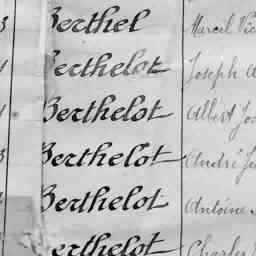 Berthel Marcel Vic
Berthelot Joseph A
Berthelot Albert Jos
Berthelot André
Berthelot Antoine
Berthelot Charles